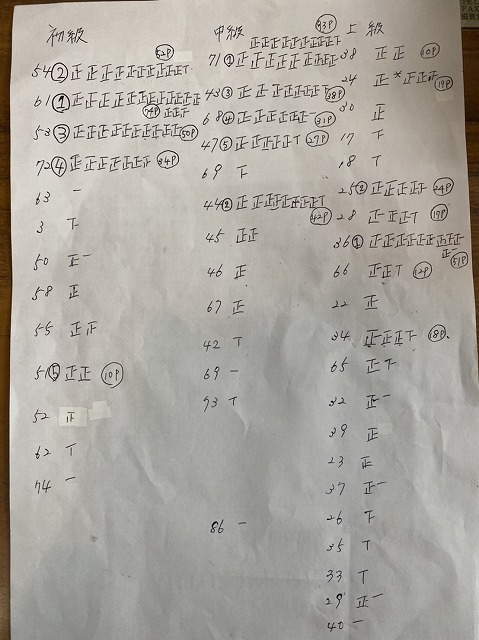 初級
54② 正正正正正正正正正正T 52P
61① 正正正正正正正正正正正正
74P 正正正
53③ 正正正正正正正正正正 50P
72④ 正正正正正正下 34P
63 一
3 下
50 正一
58 正
55 正正
51⑤ 正正 10P
52 正
62 T
74 一
中級
93P
正正正正正正正正下
71① 正正正正正正正正正正
43③ 正正正正正正正下 38P
68④ 正正正正正正一 31P
47⑤ 正正正正正T 27P
69 下
44② 正正正正正正正正T
42P
45 正正
46 正
67 正
42 T
69 一
73 T
86 一
上級
38 正正 10P
24 正*正正正 19P
30 正
17 下
18 T
25② 正正正正下 24P
28 正正正下 19P
36① 正正正正正正正正正
正一 51P
66 正正T 12P
22 正
34 正正正下 18P
65 正下
32 正一
39 正
23 正
37 正一
26 下
35 T
33 T
29 正一
40 一
FAX